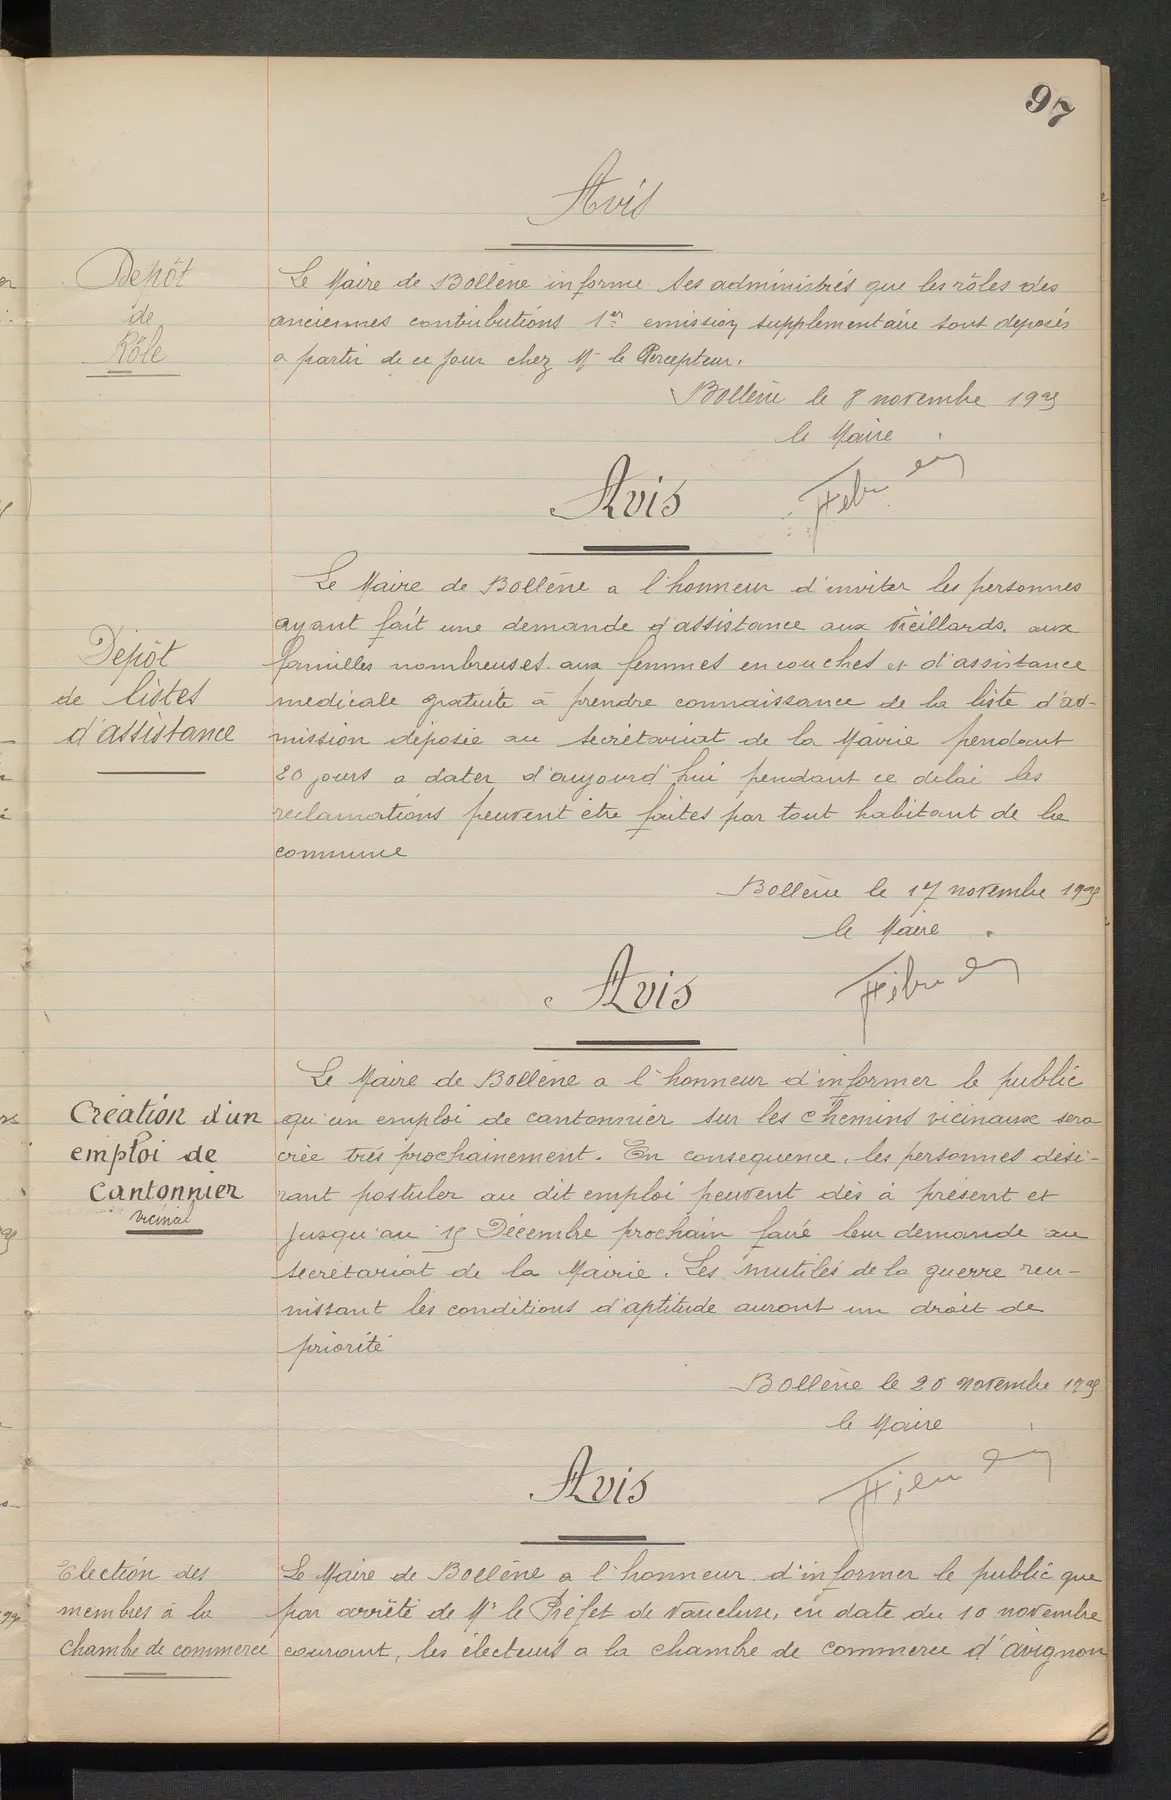 97
Avis
Depôt
de
Rôle
Le Maire de Bollène informe ses administrés que les rôles des
anciennes contributions 1er emission supplementaire sont deposés
a partir de ce jour chez Mr le Percepteur.
Bollène le 8 novembre 19
le Maire
Avis
Dépôt
de listes
d'assistance
Le Maire de Bollène a l'honneur d'inviter les personnes
ayant fait une demande d'assistance aux vieillards, aux
familles nombreuses. aux femmes en couches et d'assistance
medicale gratuite à prendre connaissance de la liste d'ad-
mission déposée au secrétariat de la Mairie pendant
20 jours a dater d'aujourd'hui pendant ce delai les
reclamations peuvent être faites par tout habitant de la
commune
Bollène le 17 novembre 19
le Maire
Avis
Création d'un
emploi de
Cantonnier
vicinal
Le Maire de Bollène a l'honneur d'informer le public
qu'un emploi de cantonnier sur les chemins vicinaux sera
crée très prochainement. En consequence, les personnes dési-
rant postuler au dit emploi peuvent dès à présent et
jusqu'au 15 Décembre prochain faire leur demande au
secrétariat de la Mairie. Les mutilés de la guerre reu-
nissant les conditions d'aptitude auront un droit de
priorité
Bollène le 20 novembre 19
le Maire
Avis
Election des
membres à la
chambre de commerce
Le Maire de Bollène a l'honneur d'informer le public que
par arrêté de Mr le Préfet de Vaucluse, en date du 10 novembre
courant, les électeurs a la chambre de commerce d'avignon